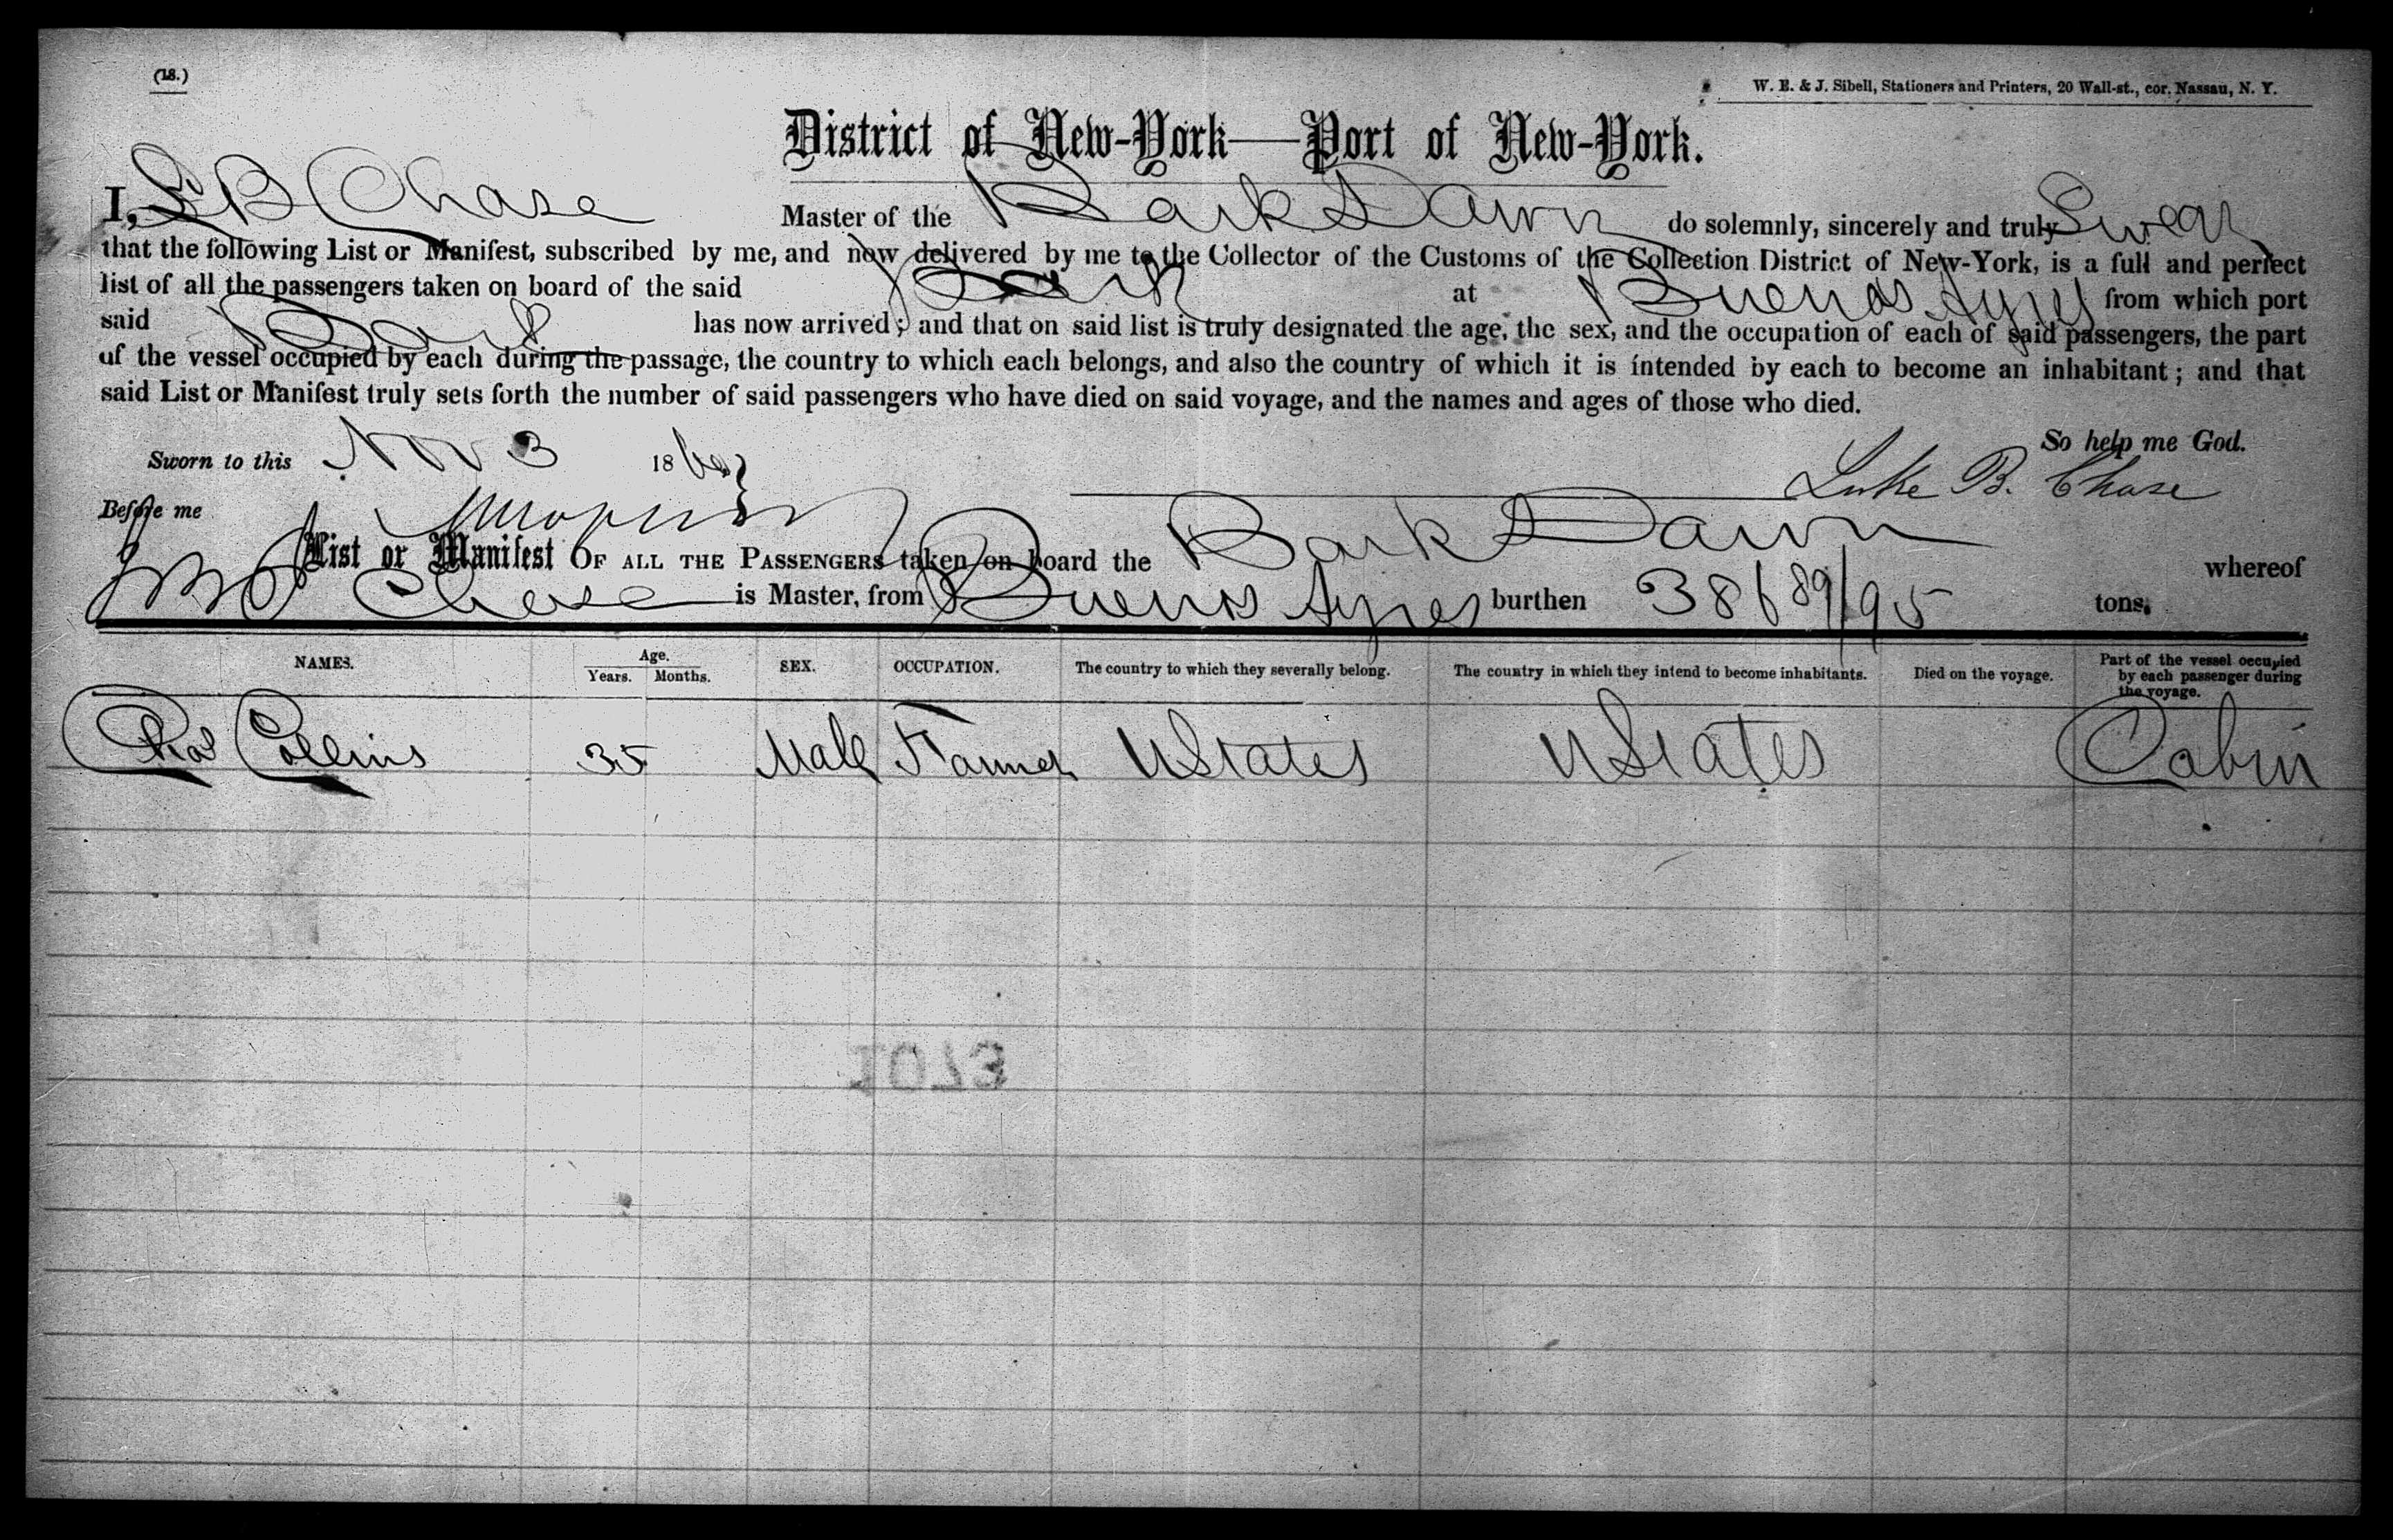 (18.)
W. E. & J. Sibell, Stationers and Printers, 20 Wall-st., cor. Nassau, N. Y.
District of New-York—Port of New-York.
I, L B Chase Master of the Bark Dawn do solemnly, sincerely and truly Swear
that the following List or Manifest, subscribed by me, and now delivered by me to the Collector of the Customs of the Collection District of New-York, is a full and perfect
list of all the passengers taken on board of the said Bark at Buenos Ayres from which port
said Bark has now arrived; and that on said list is truly designated the age, the sex, and the occupation of each of said passengers, the part
of the vessel occupied by each during the passage, the country to which each belongs, and also the country of which it is intended by each to become an inhabitant; and that
said List or Manifest truly sets forth the number of said passengers who have died on said voyage, and the names and ages of those who died.
So help me God.
Sworn to this Nov 3 18
Luke B. Chase
Before me
List or Manifest OF ALL THE PASSENGERS taken on board the Bark Dawn whereof
Chase is Master, from Buenos Ayres burthen 386 89/95 tons.
NAMES. Age. Years. Months. SEX. OCCUPATION. The country to which they severally belong. The country in which they intend to become inhabitants. Died on the voyage. Part of the vessel occupied by each passenger during the voyage.
Chas Collins 35 Male Farmer UStates UStates Cabin
1073